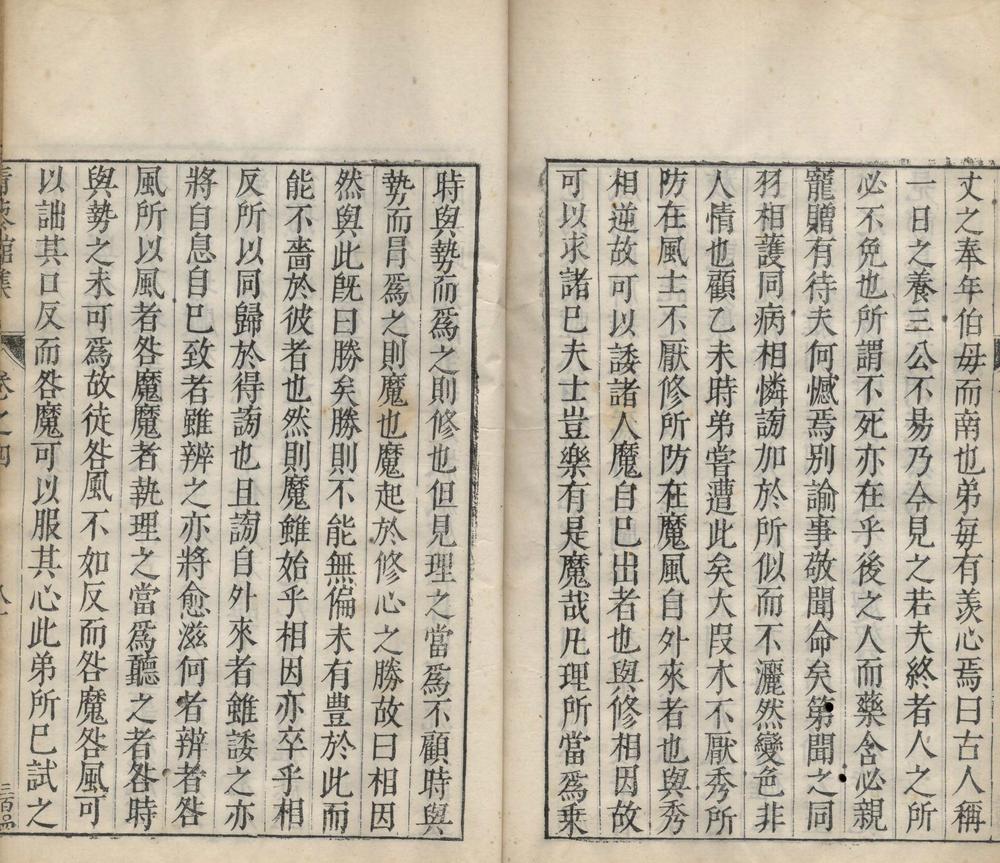 丈之奉年伯毋而南也弟每有羡心焉曰古人稱
一日之養三公不易乃今見之若夫終者人之所
必不免也所謂不死亦在乎後之人而藥含必親
寵贈有待夫何憾焉别諭事敬聞命矣第聞之同
羽相護同病相憐謗加於所似而不灑然變色非
人情也顧乙未時弟嘗遭此矣大段木不厭秀所
防在風士不厭修所防在魔風自外來者也與秀
相逆故可以諉諸人魔自已出者也與修相因故
可以求諸已夫士豈樂有是魔哉凡理所當爲乗
時與勢而爲之則修也但見理之當爲不顧時與
勢而冐爲之則魔也魔起於修心之勝故曰相因
然與此旣曰勝矣勝則不能無偏未有豊於此而
能不嗇於彼者也然則魔雖始乎相因亦卒乎相
反所以同歸於得謗也且謗自外來者雖諉之亦
將自息自已致者雖辨之亦將愈滋何者辨者咎
風所以風者咎魔魔者執理之當爲聽之者咎時
與勢之未可爲故徒咎風不如反而咎魔咎風可
以詘其口反而咎魔可以服其心此弟所已試之
卷之四